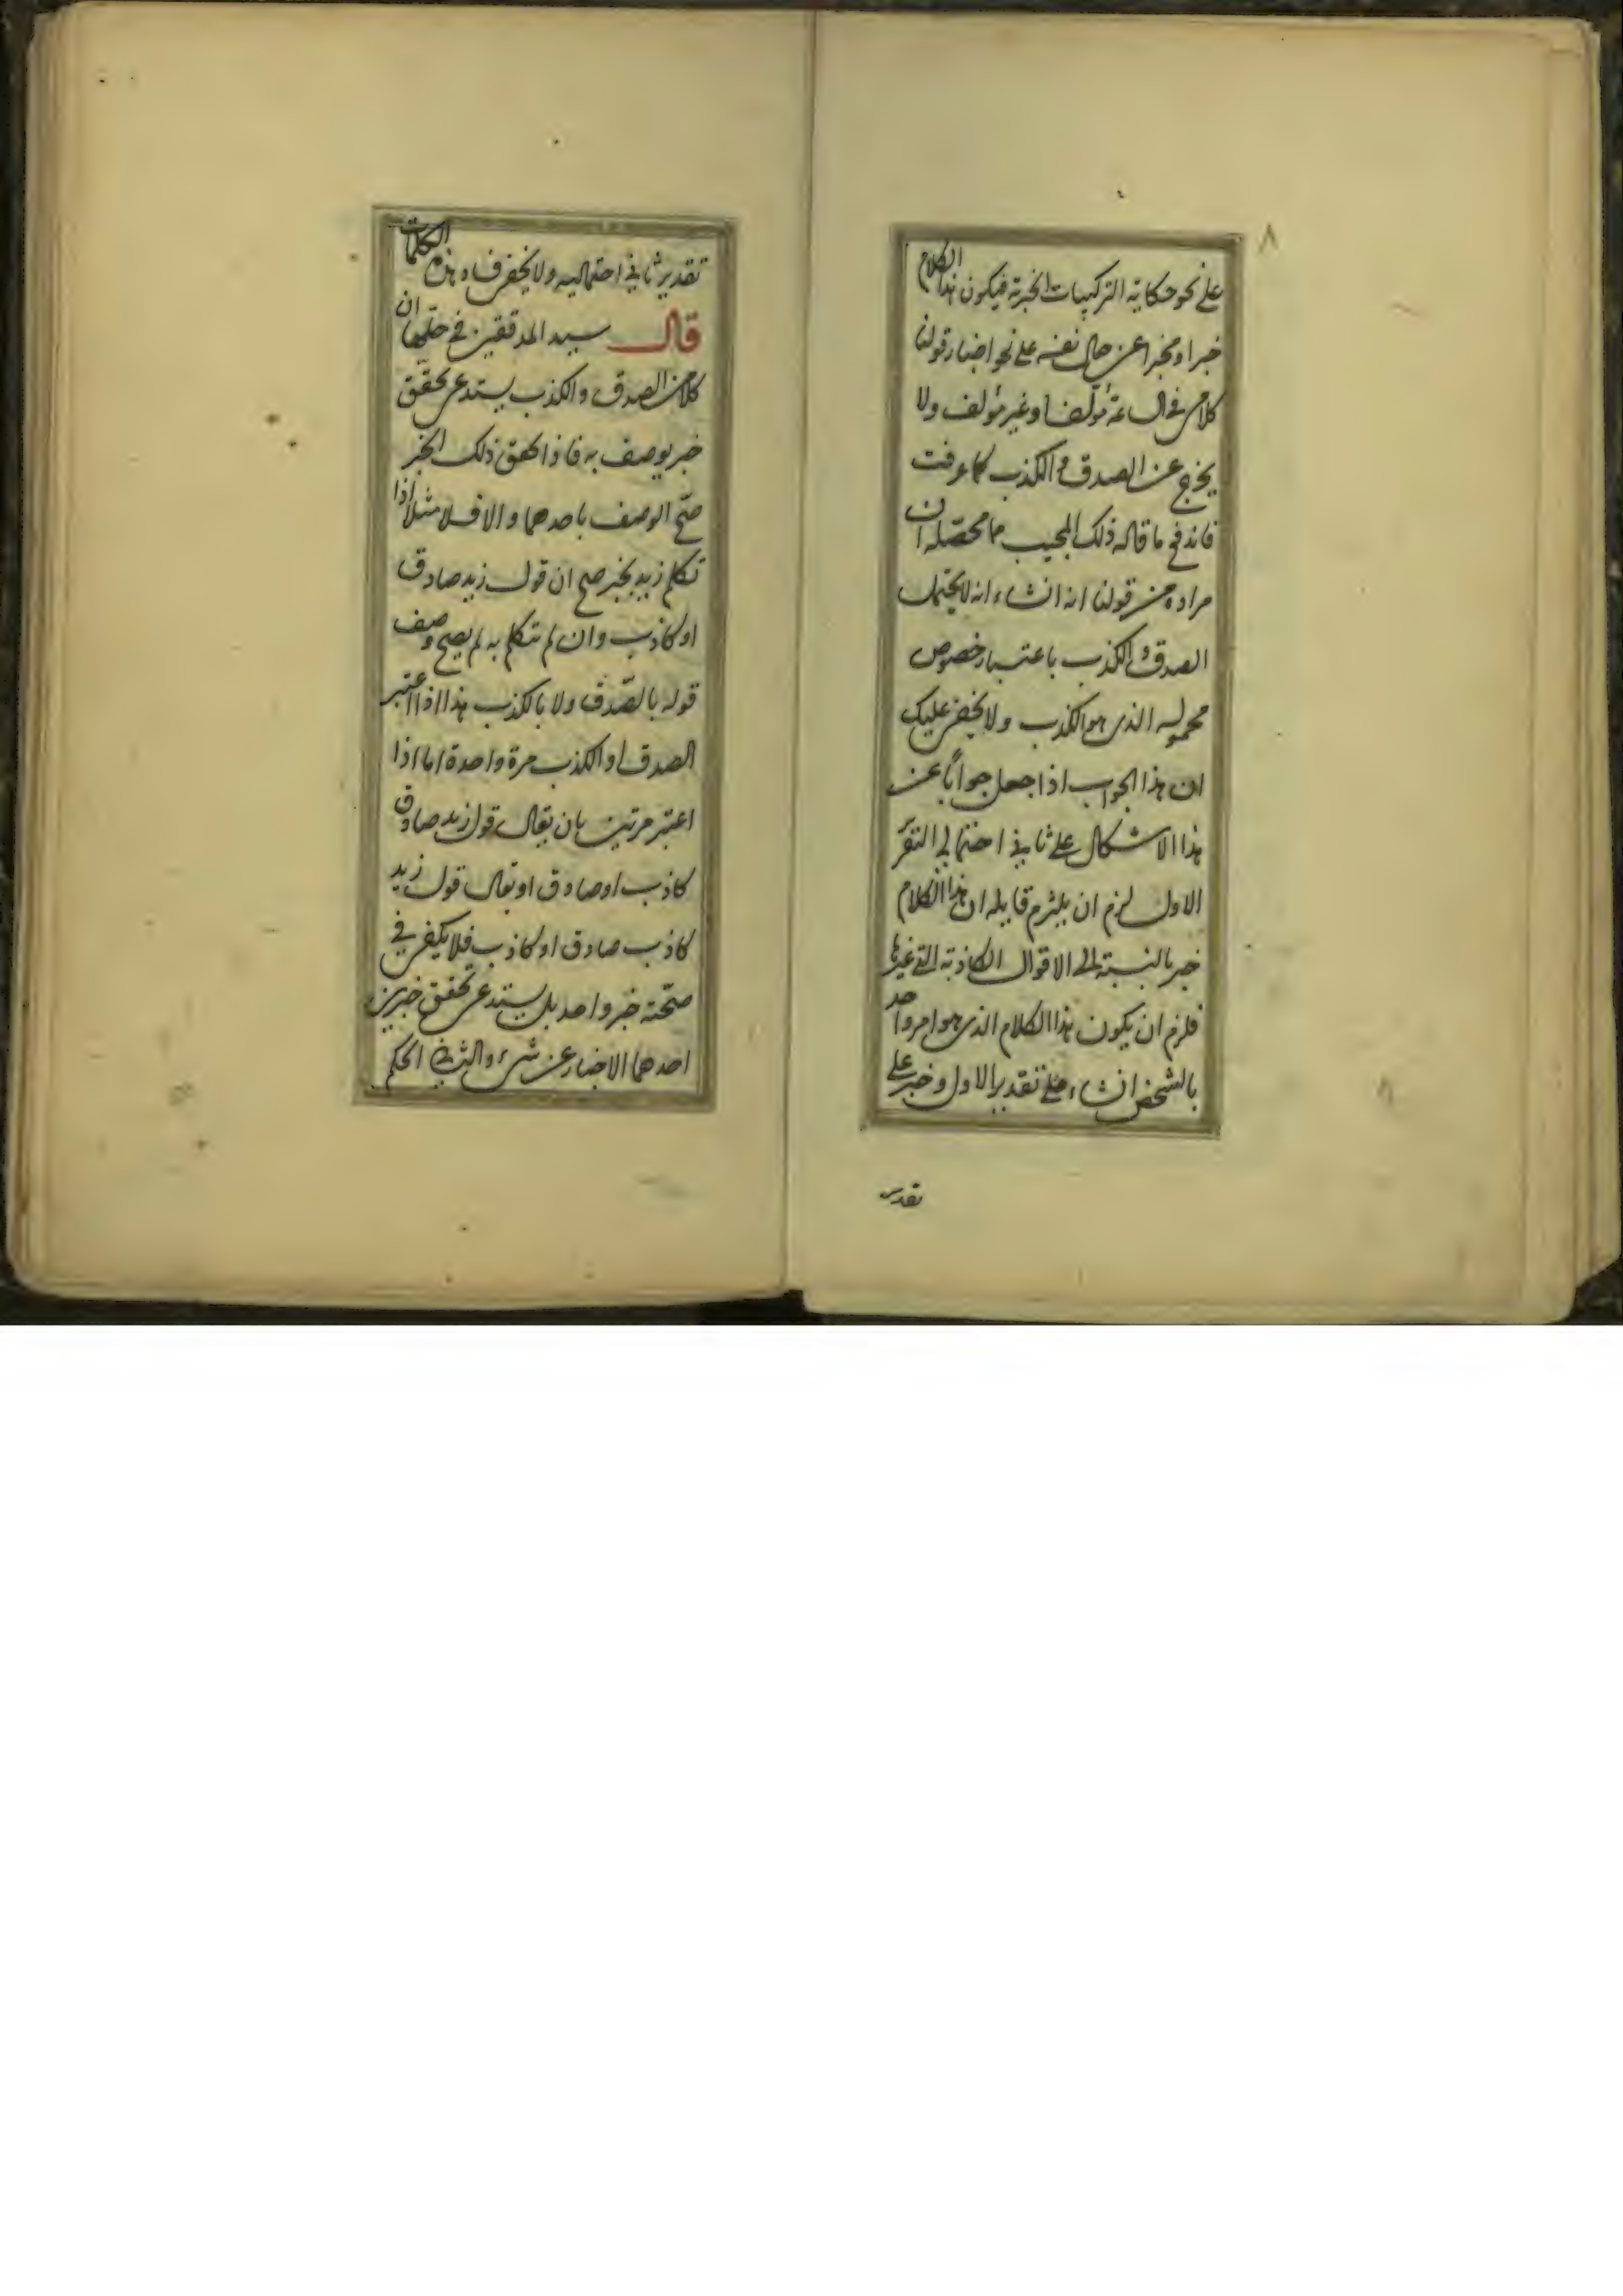 ٨
على نحو حكاية التركيبات الخبرية فيكون هذا الكلام
خبرا ومخبرا عن حال نفسه على نحو اخبار قولنا
كلامى فى الساعة مؤلف او غير مؤلف ولا
يخرج عن الصدق و الكذب كما عرفت
فاندفع ما قاله ذلك المجيب مما محصّله ان
مراده من قولنا انه انشاء انه لا يحتمل
الصدق و الكذب باعتبار خصوص
محموله الذى هو الكذب ولا يخفى عليك
ان هذا الجواب اذا جعل جوابًا عن
هذا الاشكال على ثانى احتمالى التقر
الاول لزم ان يلتزم قايله ان هذا الكلام
خبر بالنسبة الى الاقوال الكاذبة التى غيرها
فلزم ان يكون هذا الكلام الذى هو امر واحد
بالشخص انشاء على تقدير الاول وخبر على
تقدير
تقدير ثانى احتماليه ولا يخفى فساد هذه الكلمات
قال سيد المدققين فى حلها ان
كلا من الصدق والكذب يستدعى تحقق
خبر يوصف به فاذا تحقق ذلك الخبر
صحّ الوصف باحدهما والا فلا مثلا اذا
تكلم زيد بخبر صح ان قول زيد صادق
او كاذب وان لم يتكلم به لم يصح وصف
قوله بالصّدق ولا بالكذب هذا اذا اعتبر
الصدق او الكذب مرة واحدة اما اذا
اعتبر مرتين بان يقال قول زيد صادق
كاذب او صادق او يقال قول زيد
كاذب صادق او كاذب فلا يكفى فى
صحّته خبر واحد بل يستدعى تحقق خبرين
احدهما الاخبار عن شىء والثانى الحكم